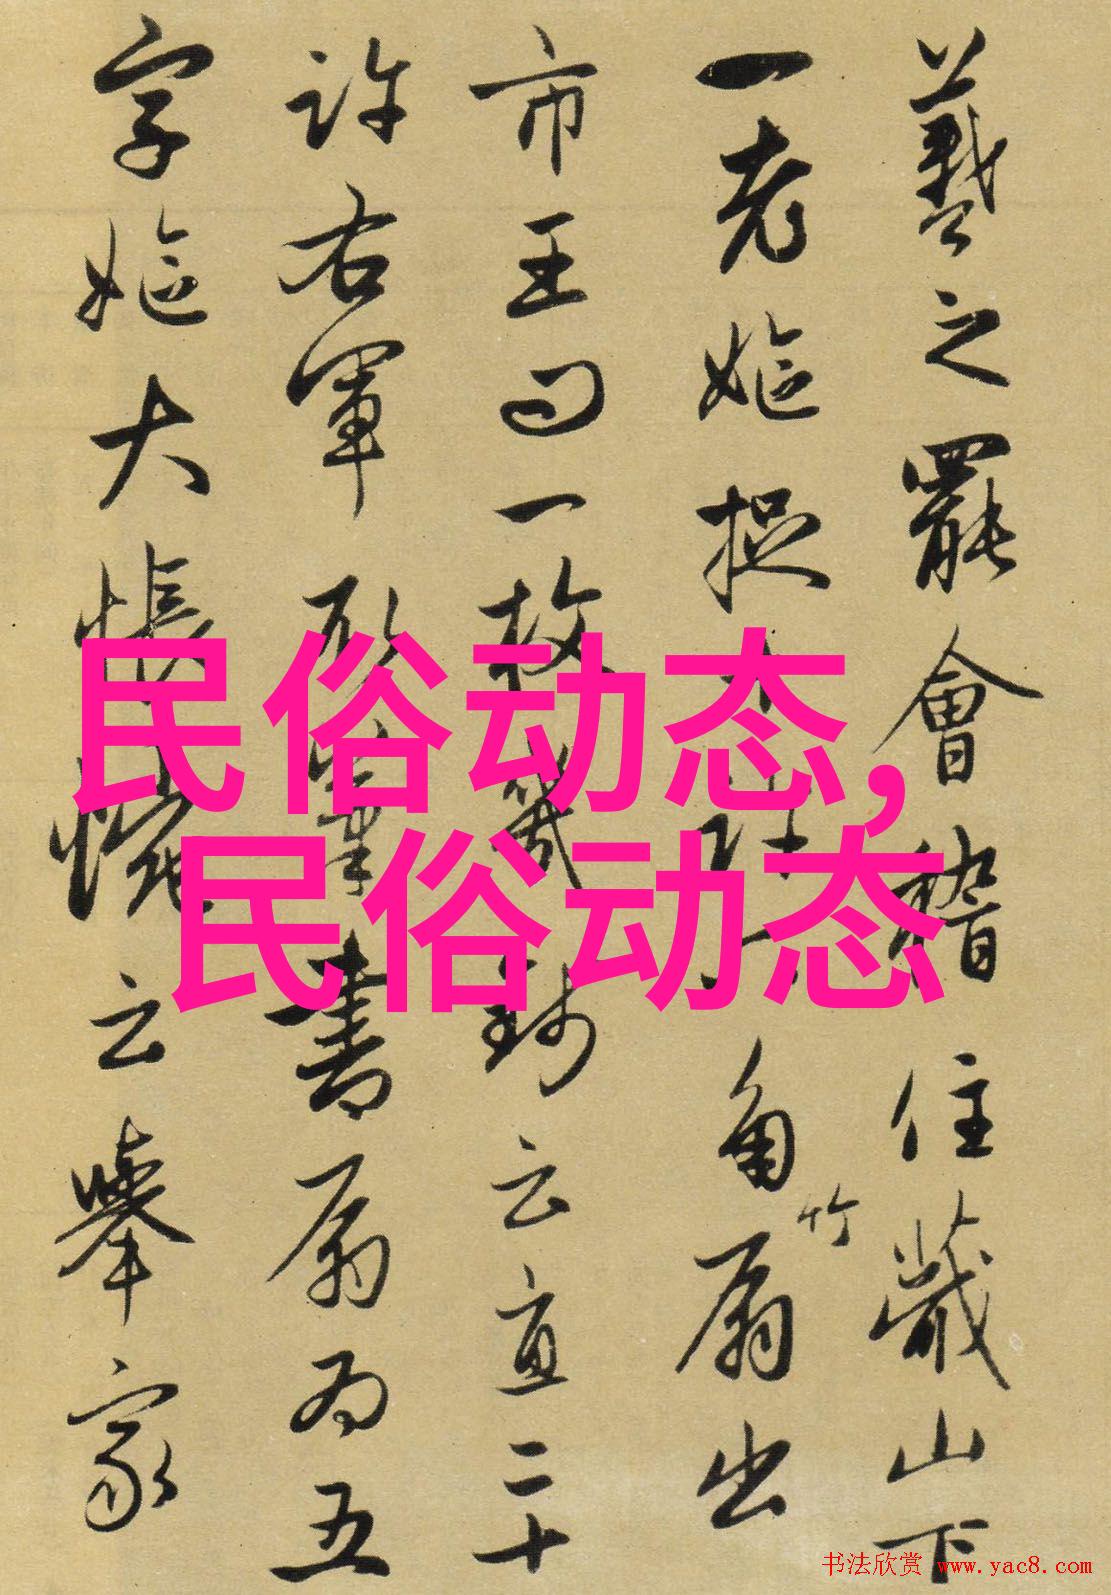 羲之罷會稽住蕺山下
一老嫗捉角竹扇出
市王問一枚幾錢云直二十
許右軍取筆書扇為五
字嫗大悵惋云舉家
民俗动态,
民俗动态
书法欣赏 www.yac8.com